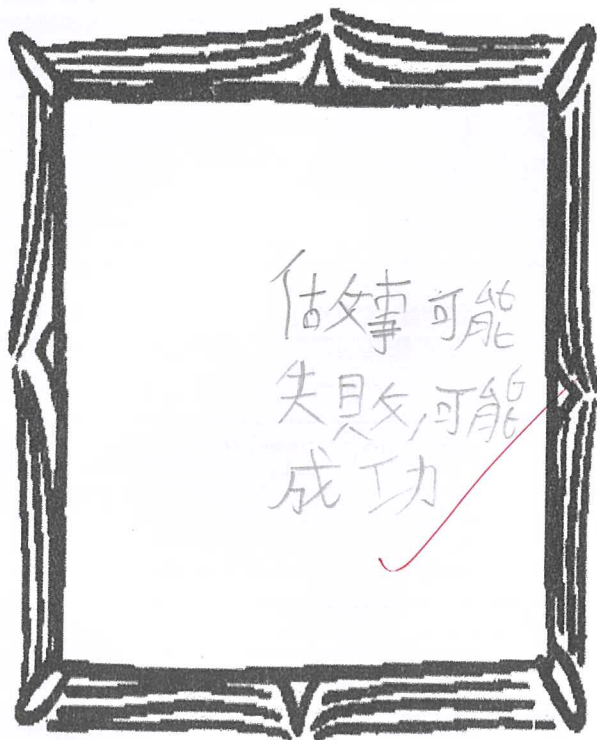 做事可能
失敗,可能
成功